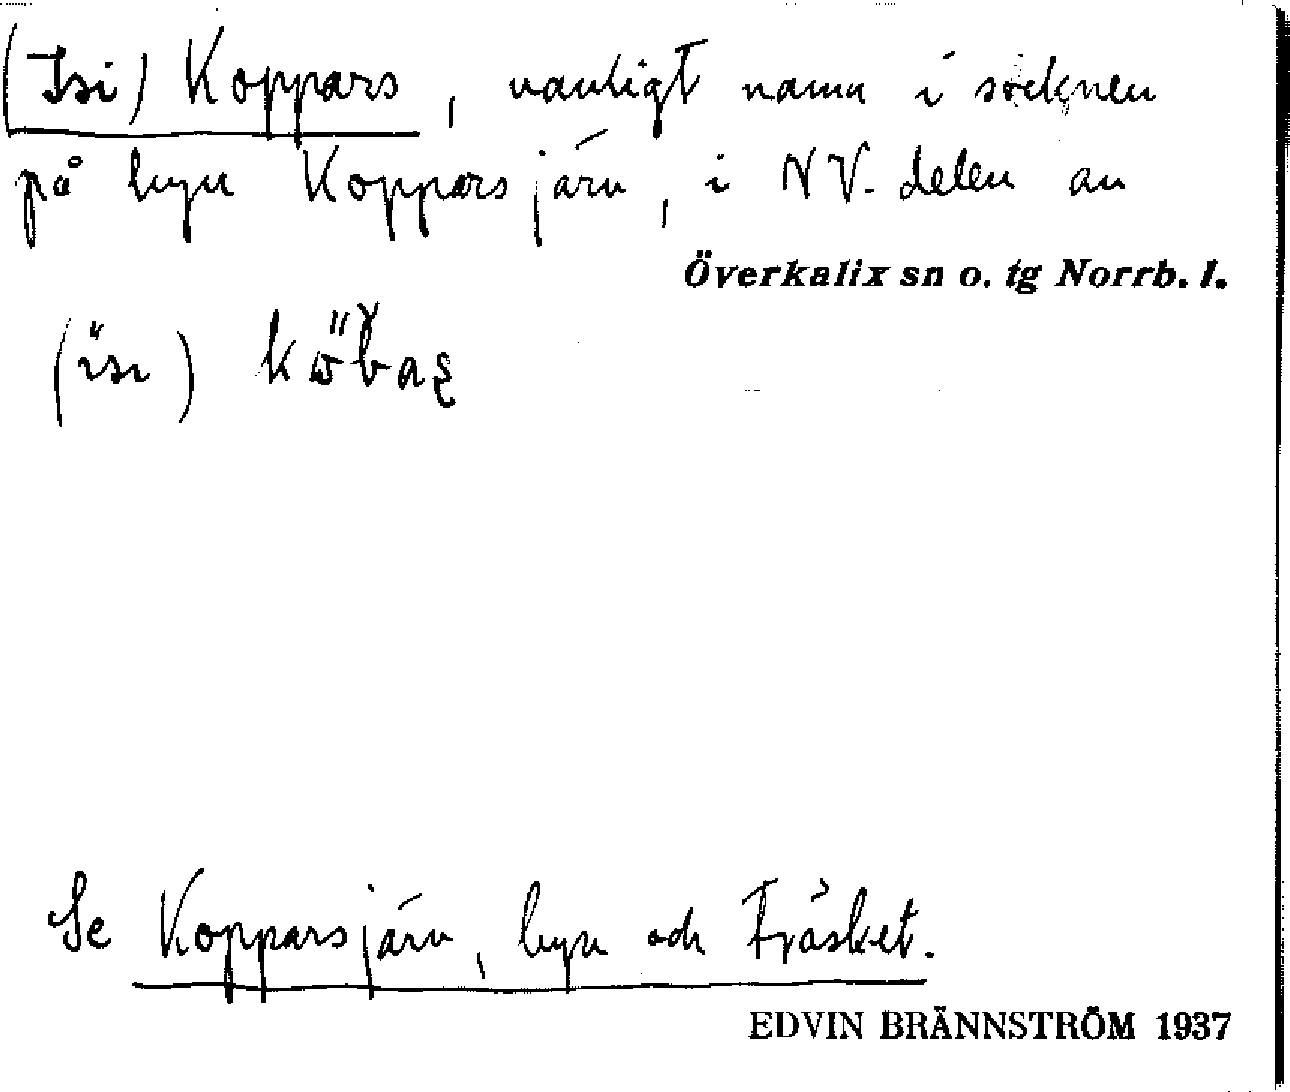 (Isi) Koppars, vanligt namn i socknen
på byn Kopparsjärv, i NV. delen av
Överkalix sn o. tg Norrb. l.
(ïsı)
Se Kopparsjärv, byn och Träsket.
EDVIN BRÄNNSTRÖM 1937